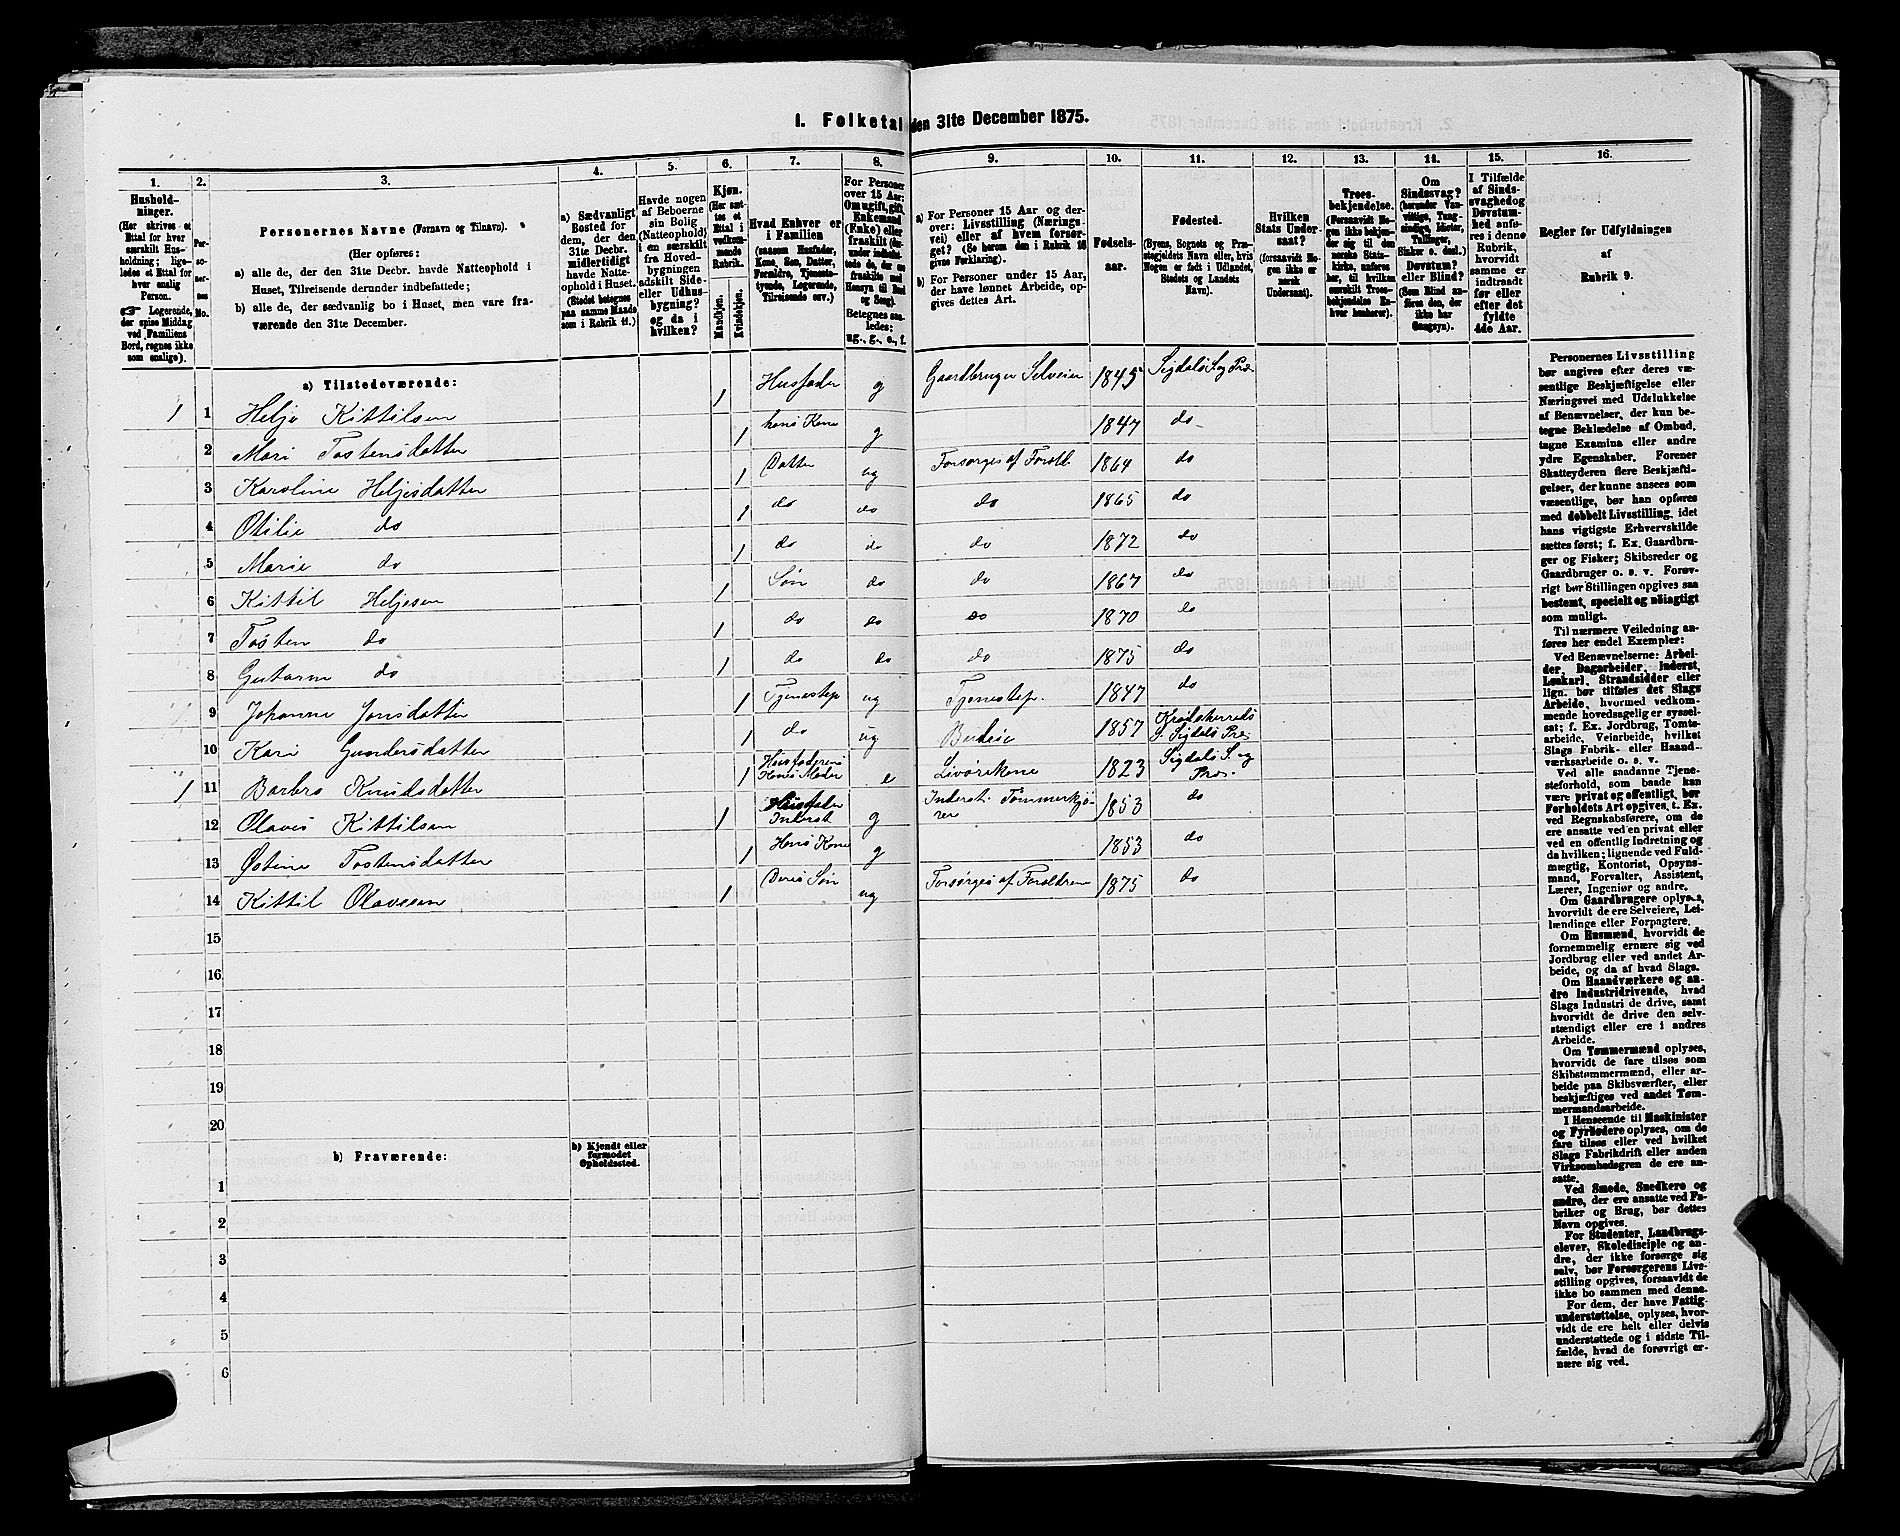 1. Folketal den 31te December 1875.
1. 2. 3. 4. 5. 6. 7. 8. 9. 10. 11. 12. 13. 14. 15. 16.
Hushold-
ninger.
(Her skrives et
Ettal for hver
særskilt Hus-
holdning; lige-
ledes et Ettal for
hver enslig
Person.
☞ Logerende,
der spise Middag
ved Familiens
Bord, regnes ikke
som enslige).
Per-
so-
ner-
nes
No.
Personernes Navne (Fornavn og Tilnavn).
(Her opføres:
a) alle de, der den 31te Decbr. havde Natteophold i
Huset, Tilreisende derunder indbefattede;
b) alle de, der sædvanlig bo i Huset, men vare fra-
værende den 31te December.
a) Sædvanligt
Bosted for
dem, der den
31te Decbr.
midlertidigt
havde Natte-
ophold i Huset.
(Stedet betegnes
paa samme Maade
som i Rubrik 11.)
Havde nogen
af Beboerne
sin Bolig
(Natteophold)
i en særskilt
fra Hoved-
bygningen
adskilt Side-
eller Udhus-
bygning?
og da i
hvilken?
Kjøn.
(Her sæt-
tes et
Ettal i
vedkom-
mende
Rubrik.
Mandkjøn.
Kvindekjøn.
Hvad Enhver er
i Familien
(saasom Husfader,
Kone, Søn, Datter,
Forældre, Tjeneste-
tyende, Logerende,
Tilreisende osv.)
For Personer
over 15 Aar:
Om ugift, gift,
Enkemand
(Enke) eller
fraskilt
Betegnes saa-
ledes:
ug., g., e., f.
a) For Personer 15 Aar og der-
over: Livsstilling (Nærings-
vei) eller af hvem forsør-
get? (Se herom den i Rubrik 16
givne Forklaring).
b) For Personer under 15 Aar,
der have lønnet Arbeide, op-
gives dettes Art.
Fødsels-
aar.
Fødested.
(Byens, Sognets og Præ-
stegjeldets Navn eller, hvis
Nogen er født i Udlandet,
Stedets og Landets
Navn).
Hvilken
Stats Under-
saat?
(forsaavidt No-
gen ikke er
norsk
Undersaat).
Troes-
bekjendelse.
(Forsaavidt No-
gen ikke bekjen-
der sig til den
norske Stats-
kirke, anføres
her, til hvilken
særskilt Troes-
bekjendelse En-
hver henhører).
Om
Sindssvag?
Døvstum?
eller Blind?
(Som Blind an-
føres den, der
ikke har
Gangsyn).
I Tilfælde
af Sinds-
svaghed og
Døvstum-
hed anfø-
res i denne
Rubrik,
hvorvidt
samme er
indtraadt
før eller
efter det
fyldte
4de Aar.
Regler for Udfyldningen
af
Rubrik 9.
a) Tilstedeværende:
1 1 Helje Kittilsen 1 Husfader g Gaardbruger Selveier 1845 Sigdals S. og Præ
2 Mari Tostensdatter 1 hans Kone g 1847 do
3 Karoline Heljesdatter 1 Datter ug Forsørges af Foreld. 1864 do
4 Otilie do 1 do do do 1865 do
5 Marie do 1 do do do 1872 do
6 Kittil Heljesen 1 Søn do do 1867 do
7 Tosten do 1 do do do 1870 do
8 Gustarm do 1 do do do 1875 do
9 Johanne Jonsdatter 1 Tjenestep ug Tjenestep. 1847 do
10 Kari Gundersdatter 1 do ug Budeie 1857 Krødsherreds S. Sigdals Præ.
1 11 Barbro Knudsdatter 1 Husfaderens Moder e Livørekone 1823 Sigdals S. og Præ.
12 Olaves Kittilsen 1 Husfader Inderst g Inderst. Tømmerkjører 1853 do
13 Østine Tostensdatter 1 Hans Kone g 1853 do
14 Kittil Olavessen 1 Deres Søn ug Forsørges af Forældrene 1875 do
15
16
17
18
19
20
b) Fraværende:
b) Kjendt eller
formodet
Opholdssted.
1
2
3
4
5
6
Personernes Livsstilling
bør angives efter deres væ-
sentlige Beskjæftigelse eller
Næringsvei med Udelukkelse
af Benævnelser, der kun be-
tegne Beklædelse af Ombud,
tagne Examina eller andre
ydre Egenskaber. Forener
Skatteyderen flere Beskjæfti-
gelser, der kunne ansees som
væsentlige, bør han opføres
med dobbelt Livsstilling, idet
hans vigtigste Erhvervskilde
sættes først; f. Ex. Gaardbru-
ger og Fisker; Skibsreder og
Gaardbruger o. s. v. Forøv-
rigt bør Stillingen opgives saa
bestemt, specielt og nøiagtigt
som muligt.
Til nærmere Veiledning an-
føres her endel Exempler:
Ved Benævnelserne: Arbei-
der, Dagarbeider, Inderst,
Løskarl, Strandsidder eller
lign. bør tilføies det Slags
Arbeide, hvormed vedkom-
mende hovedsagelig er syssel-
sat; f. Ex. Jordbrug, Tomte-
arbeide, Veiarbeide, hvilket
Slags Fabrik- eller Haand-
værksarbeide o. s. v.
Ved alle saadanne Tjene-
steforhold, som baade kan
være privat og offentligt, bør
Forholdets Art opgives, t. Ex.
ved Regnskabsførere, om de
ere ansatte ved en privat eller
ved en offentlig Indretning og
da hvilken; lignende ved Fuld-
mægtig, Kontorist, Opsyns-
mand, Forvalter, Assistent,
Lærer, Ingeniør og andre.
Om Gaardbrugere oplyses,
hvorvidt de ere Selveiere, Lei-
lændinge eller Forpagtere.
Om Husmænd, hvorvidt de
fornemmelig ernære sig ved
Jordbrug eller ved andet Ar-
beide, og da af hvad Slags.
Om Haandværkere og an-
dre Industridrivende, hvad
Slags Industri de drive, samt
hvorvidt de drive den selv-
stændigt eller ere i andres
Arbeide.
Om Tømmermænd oplyses,
hvorvidt de fare tilsøs som
Skibstømmermænd, eller ar-
beide paa Skibsværfter, eller
beskjæftiges ved andet Tøm-
mermandsarbeide.
I Henseende til Maskinister
og Fyrbødere oplyses, om de
fare tilsøs eller ved hvilket
Slags Fabrikdrift eller anden
Virksomhedsgren de ere an-
satte.
Ved Smede, Snedkere og
andre, der ere ansatte ved Fa-
briker og Brug, bør dettes
Navn opgives.
For Studenter, Landbrugs-
elever, Skoledisciple og an-
dre, der ikke forsørge sig
selv, bør Forsørgerens Livs-
stilling opgives, forsaavidt de
ikke bo sammen med denne.
For dem, der have Fattig-
understøttelse, oplyses, hvor-
vidt de ere helt eller delvis
understøttede og i sidste Til-
fælde, hvad de forøvrigt er-
nære sig ved.